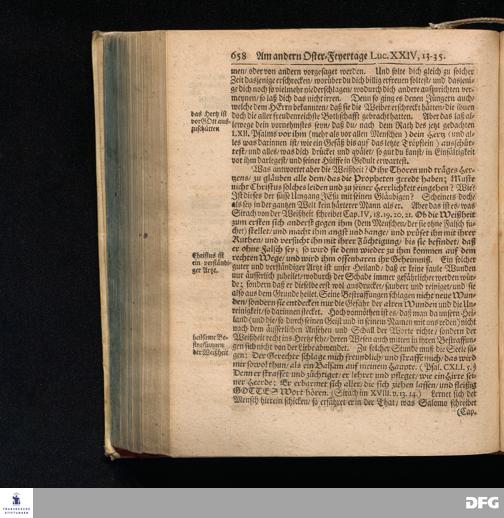 658 Am andern Oster-Feyertage Luc. XXIV, 13-35.
men/ oder von andern vorgesaget werden. Und solte dich gleich zu solcher
Zeit dasjenige erschrecken/ worüber du dich billig erfreuen soltest/ und dasjeni-
ge dich noch so vielmehr niederschlagen/ wodurch dich andere aufzurichten ver-
meynen/ so laß dich das nicht irren. Denn so ging es denen Jüngern auch/
welche dem HErrn bekannten/ daß sie die Weiber erschreckt hätten/ die ihnen
doch die aller freudenreichste Bothschafft gebracht hatten. Aber das laß al-
lewege dein vornehmstes seyn/ daß du/ nach dem Rath des jetz gedachten
LXII. Psalms vor ihm (mehr als vor allen Menschen) dein Hertz (und al-
les was darinnen ist/ wie ein Gefäß bis auf das letzte Tröpflein) ausschüt-
test/ und alles/ was dich drücket und qvälet/ so gut du kanst/ in Einfältigkeit
vor ihm darlegest/ und seiner Hülffe in Gedult erwartest.
das Hertz ist
vor GOtt aus-
zuschütten
Was antwortet aber die Weißheit? O ihr Thoren und träges Her-
tzens/ zu gläuben alle dem/ das die Propheten geredt haben; Muste
nicht Christus solches leiden und zu seiner Herrlichkeit eingehen? Wie?
Ist dieses der süsse Umgang JEsu mit seinen Gläubigen? Scheinets doch/
als sey in der gantzen Welt kein härterer Mann als er. Aber das ist es/ was
Sirach von der Weißheit schreibet Cap. IV, 18. 19. 20. 21. Ob die Weißheit
zum ersten sich anderst gegen ihm (dem Menschen/ der sie ohne Falsch su-
chet) stellet/ und macht ihm angst und bange/ und prüfet ihn mit ihrer
Ruthen/ und versucht ihn mit ihrer Züchtigung/ bis sie befindet/ daß
er ohne Falsch sey; so wird sie denn wieder zu ihm kommen auf dem
rechten Wege/ und wird ihm offenbaren ihr Geheimniß. Ein solcher
guter und verständiger Artzt ist unser Heiland/ daß er keine faule Wunden
nur äusserlich zuheilet/ wodurch der Schade immer gefährlicher werden wür-
de; sondern daß er dieselbe erst wol ausdrucket/ säubert und reiniget/ und sie
also aus dem Grunde heilet. Seine Bestraffungen schlagen nicht neue Wun-
den/ sondern sie entdecken nur die Gefahr der alten Wunden und die Un-
reinigkeit/ so darinnen stecket.
Christus ist
ein verständi-
ger Artzt.
Hoch vonnöthen ist es/ daß man da unsern Hei-
land (und die/ so durch seinen Geist und in seinem Namen mit uns reden) nicht
nach dem äusserlichen Ansehen und Schall der Worte richte/ sondern der
Weißheit recht ins Hertze sehe/ deren Wesen auch mitten in ihren Bestraffun-
gen sich nicht von der Liebe abwendet. Zu solcher Stunde muß die Seele sa-
gen: Der Gerechte schlage mich freundlich/ und straffe mich/ das wird
mir so wol thun/ als ein Balsam auf meinem Haupte. (Psal. CXLI. 5.)
Denn er straffet und züchtiget/ er lehret und pfleget/ wie ein Hirte sei-
ner Heerde; Er erbarmet sich aller/ die sich ziehen lassen/ und fleißig
GOTTES Wort hören. (Sirach im XVIII. v. 13. 14.) Lernet sich der
Mensch hierein schicken/ so erfähret er in der That/ was Salomo schreibet
heilsame Be-
straffungen
der Weißheit
(Cap.
FRANCKESCHE
STIFTUNGEN
DFG